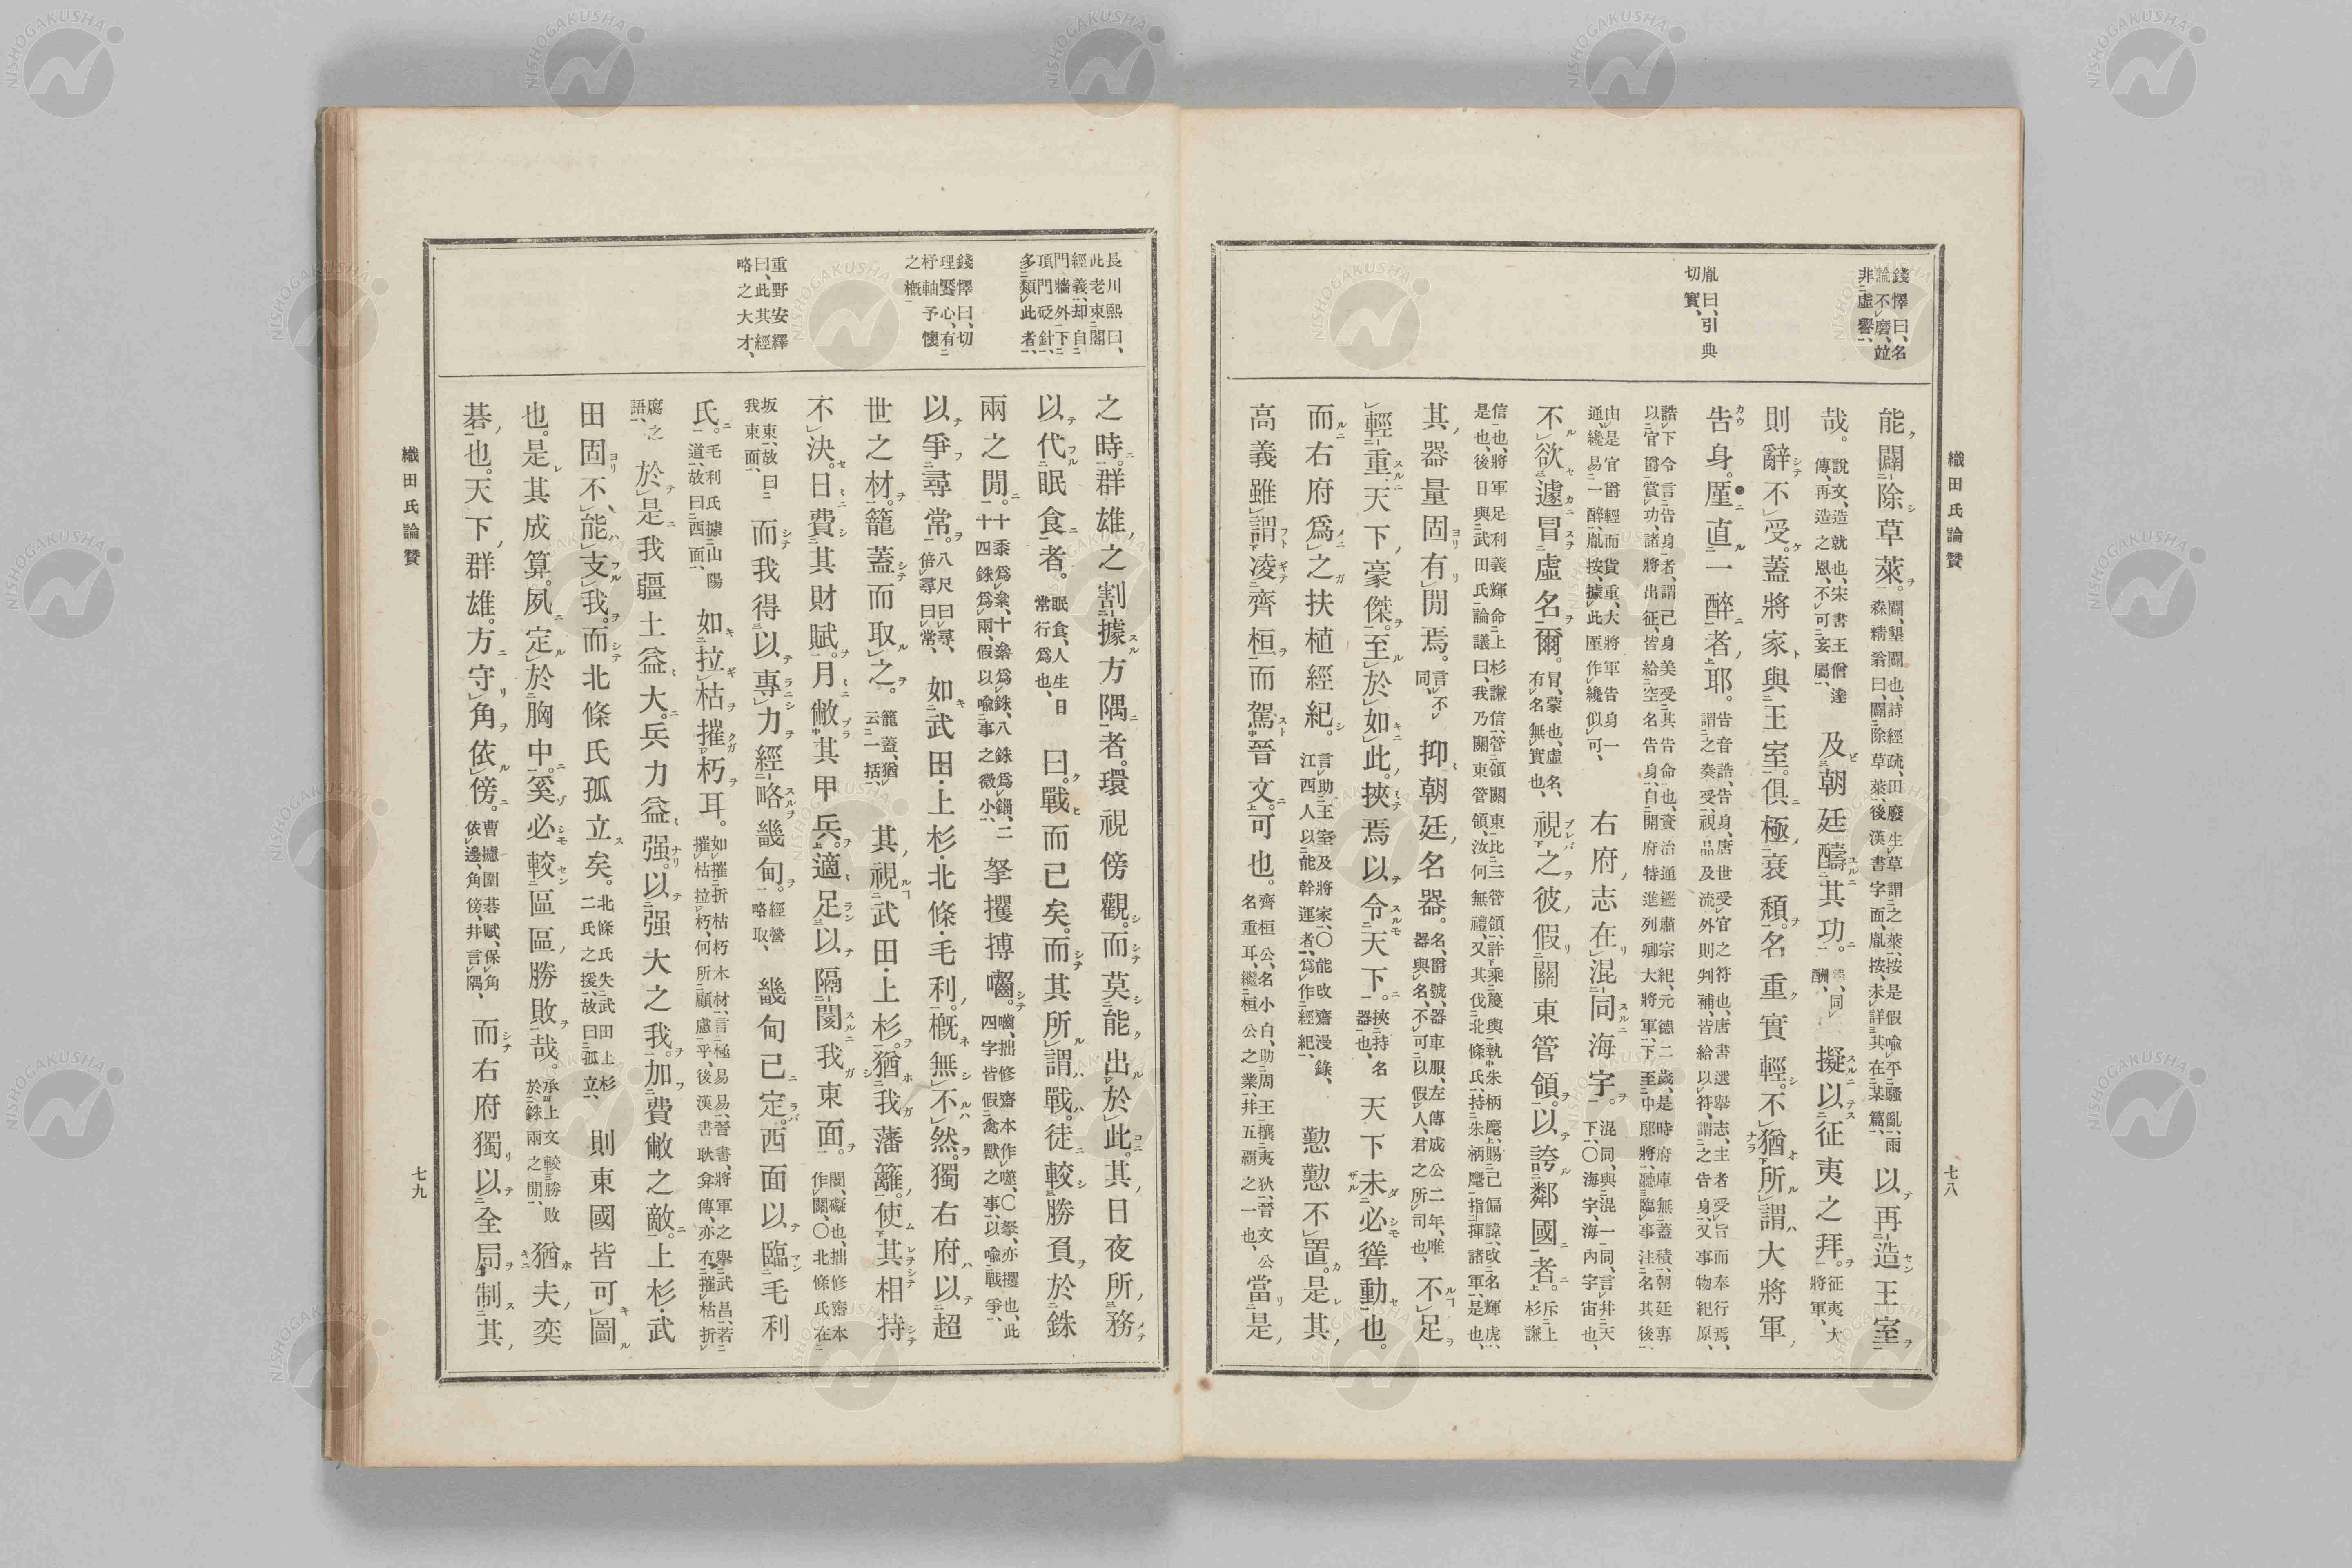 織田氏論贊
七八
錢懌曰、名
論不磨、竝
非虛譽、
胤曰、引典
切實、
能闢除草萊。闢、墾闢也、詩經疏、田廢生草謂之萊、按是假喩平騷亂、雨森精翁曰、闢除草萊、後漢書字面、胤按、未詳其在某篇、以再造王室
哉。說文、造就也、宋書王僧達傳、再造之恩、不可妄屬、及朝廷醻其功。同酬、擬以征夷之拜。征夷大將軍、
則辭不受。蓋將家與王室。俱極衰頽。名重實輕。不猶所謂大將軍
告身。厪直一醉者耶。告音誥、告身、唐世受官之符也、唐書選擧志、主者受旨而奉行焉、謂之奏受、視品及流外則判補、皆給以符、謂之告身、又事物紀原、
誥下令言告身者、謂己身美受其告命也、資治通鑑肅宗紀、元德二歲是時府庫無蓋積、朝廷專以官爵賞功、諸將出征、皆給空名告身、自開府特進列卿大將軍、下至中郎將、聽臨事注名其後、
由是官爵輕而貨重、大將軍告身一通、纔易一醉、胤按、據此厪作纔似可、右府志在混同海宇。混同、與混一同、言幷天下、〇海宇、海內宇宙也、
不欲遽冒虛名爾。冒、蒙也、虛名、有名無實也、視之彼假關東管領。以誇鄰國者。斥上杉謙
信也、將軍足利義輝命上杉謙信、管領關東、比三管領、許乘篾輿、執朱柄麾、賜己偏諱、改名輝虎、是也、後日與武田氏論議曰、我乃關東管領、汝何無禮、又其伐北條氏、持朱柄麾指揮諸軍、是也、
其器量固有閒焉。言不同、抑朝廷名器。名、爵號、器車服、左傳成公二年、唯器與名、不可以假人、君之所司也、不足
輕重天下豪傑。至於如此。挾焉以令天下。挾持名器也、天下未必聳動也。
而右府爲之扶植經紀。言助王室及將家、〇能改齋漫錄、江西人以能幹運者、爲作經紀、懃懃不置。是其
高義雖謂凌齊桓而駕晉文可也。齊桓公、名小白、助周王攘夷狄、晉文公名重耳、繼桓公之業、幷五霸之一也、當是
長川熙曰、
此老東閣
經義、却自
門牆外下
頂門砭針、
多類此者、
錢懌曰、切
理饜心、有
杼軸予懷
之槪
重野安繹
曰、此其經
略之大才、
之時。群雄之割據方隅者。環視傍觀。而莫能出於此。其日夜所務
以代眠食者。眠食、人生日常行爲也、曰。戰而已矣。而其所謂戰。徒較勝負於銖
兩之閒。十黍爲絫、十絫爲銖、八銖爲錙、二十四銖爲兩、假以喩事之微小、拏攫搏嚙。嚙、拙修齋本作噬、〇拏、亦攫也、此四字皆假禽獸之事、以喩戰爭、
以爭尋常。八尺曰尋、倍尋曰常、如武田·上杉·北條·毛利。槪無不然。獨右府以超
世之材。籠蓋而取之。籠蓋、猶云一括、其視武田·上杉。猶我藩籬。使其相持
不決。日費其財賦。月敝其甲兵。適足以隔閡我東面。閡、礙也、拙修齋本作關、〇北條氏在
坂東、故曰我東面、而我得以專力經略畿甸。經營略取、畿甸已定。西面以臨毛利
氏。毛利氏據山陽道、故曰西面、如拉枯摧朽耳。如摧折枯朽木材、言極易易、晉書、將軍之擧武昌、若摧枯拉朽、何所顧慮乎、後漢書耿弇傳、亦有摧枯折
腐之語、於是我疆土益大。兵力益强。以强大之我。加費敝之敵。上杉·武
田固不能支我。而北條氏孤立矣。北條氏失武田上杉二氏之援、故曰孤立、則東國皆可圖
也。是其成算。夙定於胸中。奚必較區區勝敗哉。承上文較勝敗於銖兩之閒、猶夫奕
棊也。天下群雄。方守角依傍。曹攄圍棊賦、保角依邊、角傍、幷言隅、而右府獨以全局制其
織田氏論贊
七九